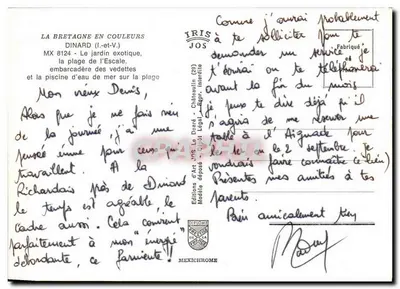 LA BRETAGNE EN COULEURS
DINARD (I.-et-V.)
MX 8124 - Le jardin exotique,
la plage de l'Escale,
embarcadère des vedettes
et la piscine d'eau de mer sur la plage
Mon vieux Denis,
Alors que je ne fais rien
de la journée j'ai une
pensée émue pour ceux qui
travaillent. A la
Richardais près de Dinard
le temps est agréable le
cadre aussi. Cela convient
parfaitement à mon "énergie"
débordante, ce farniente!
IRIS
JOS
Fabriqué
Comme j'aurai probablement
à te solliciter pour te
demander un service je
t'écrirai ou te téléphonerai
avant la fin du mois
je peux te dire déjà qu'il
s'agira de me réserver une
table à l'Aiguade pour
le 1er ou le 2 septembre je
voudrais faire connaître ce lieu
Présentes mes amitiés à tes
parents.
Bien amicalement
MEXICHROME